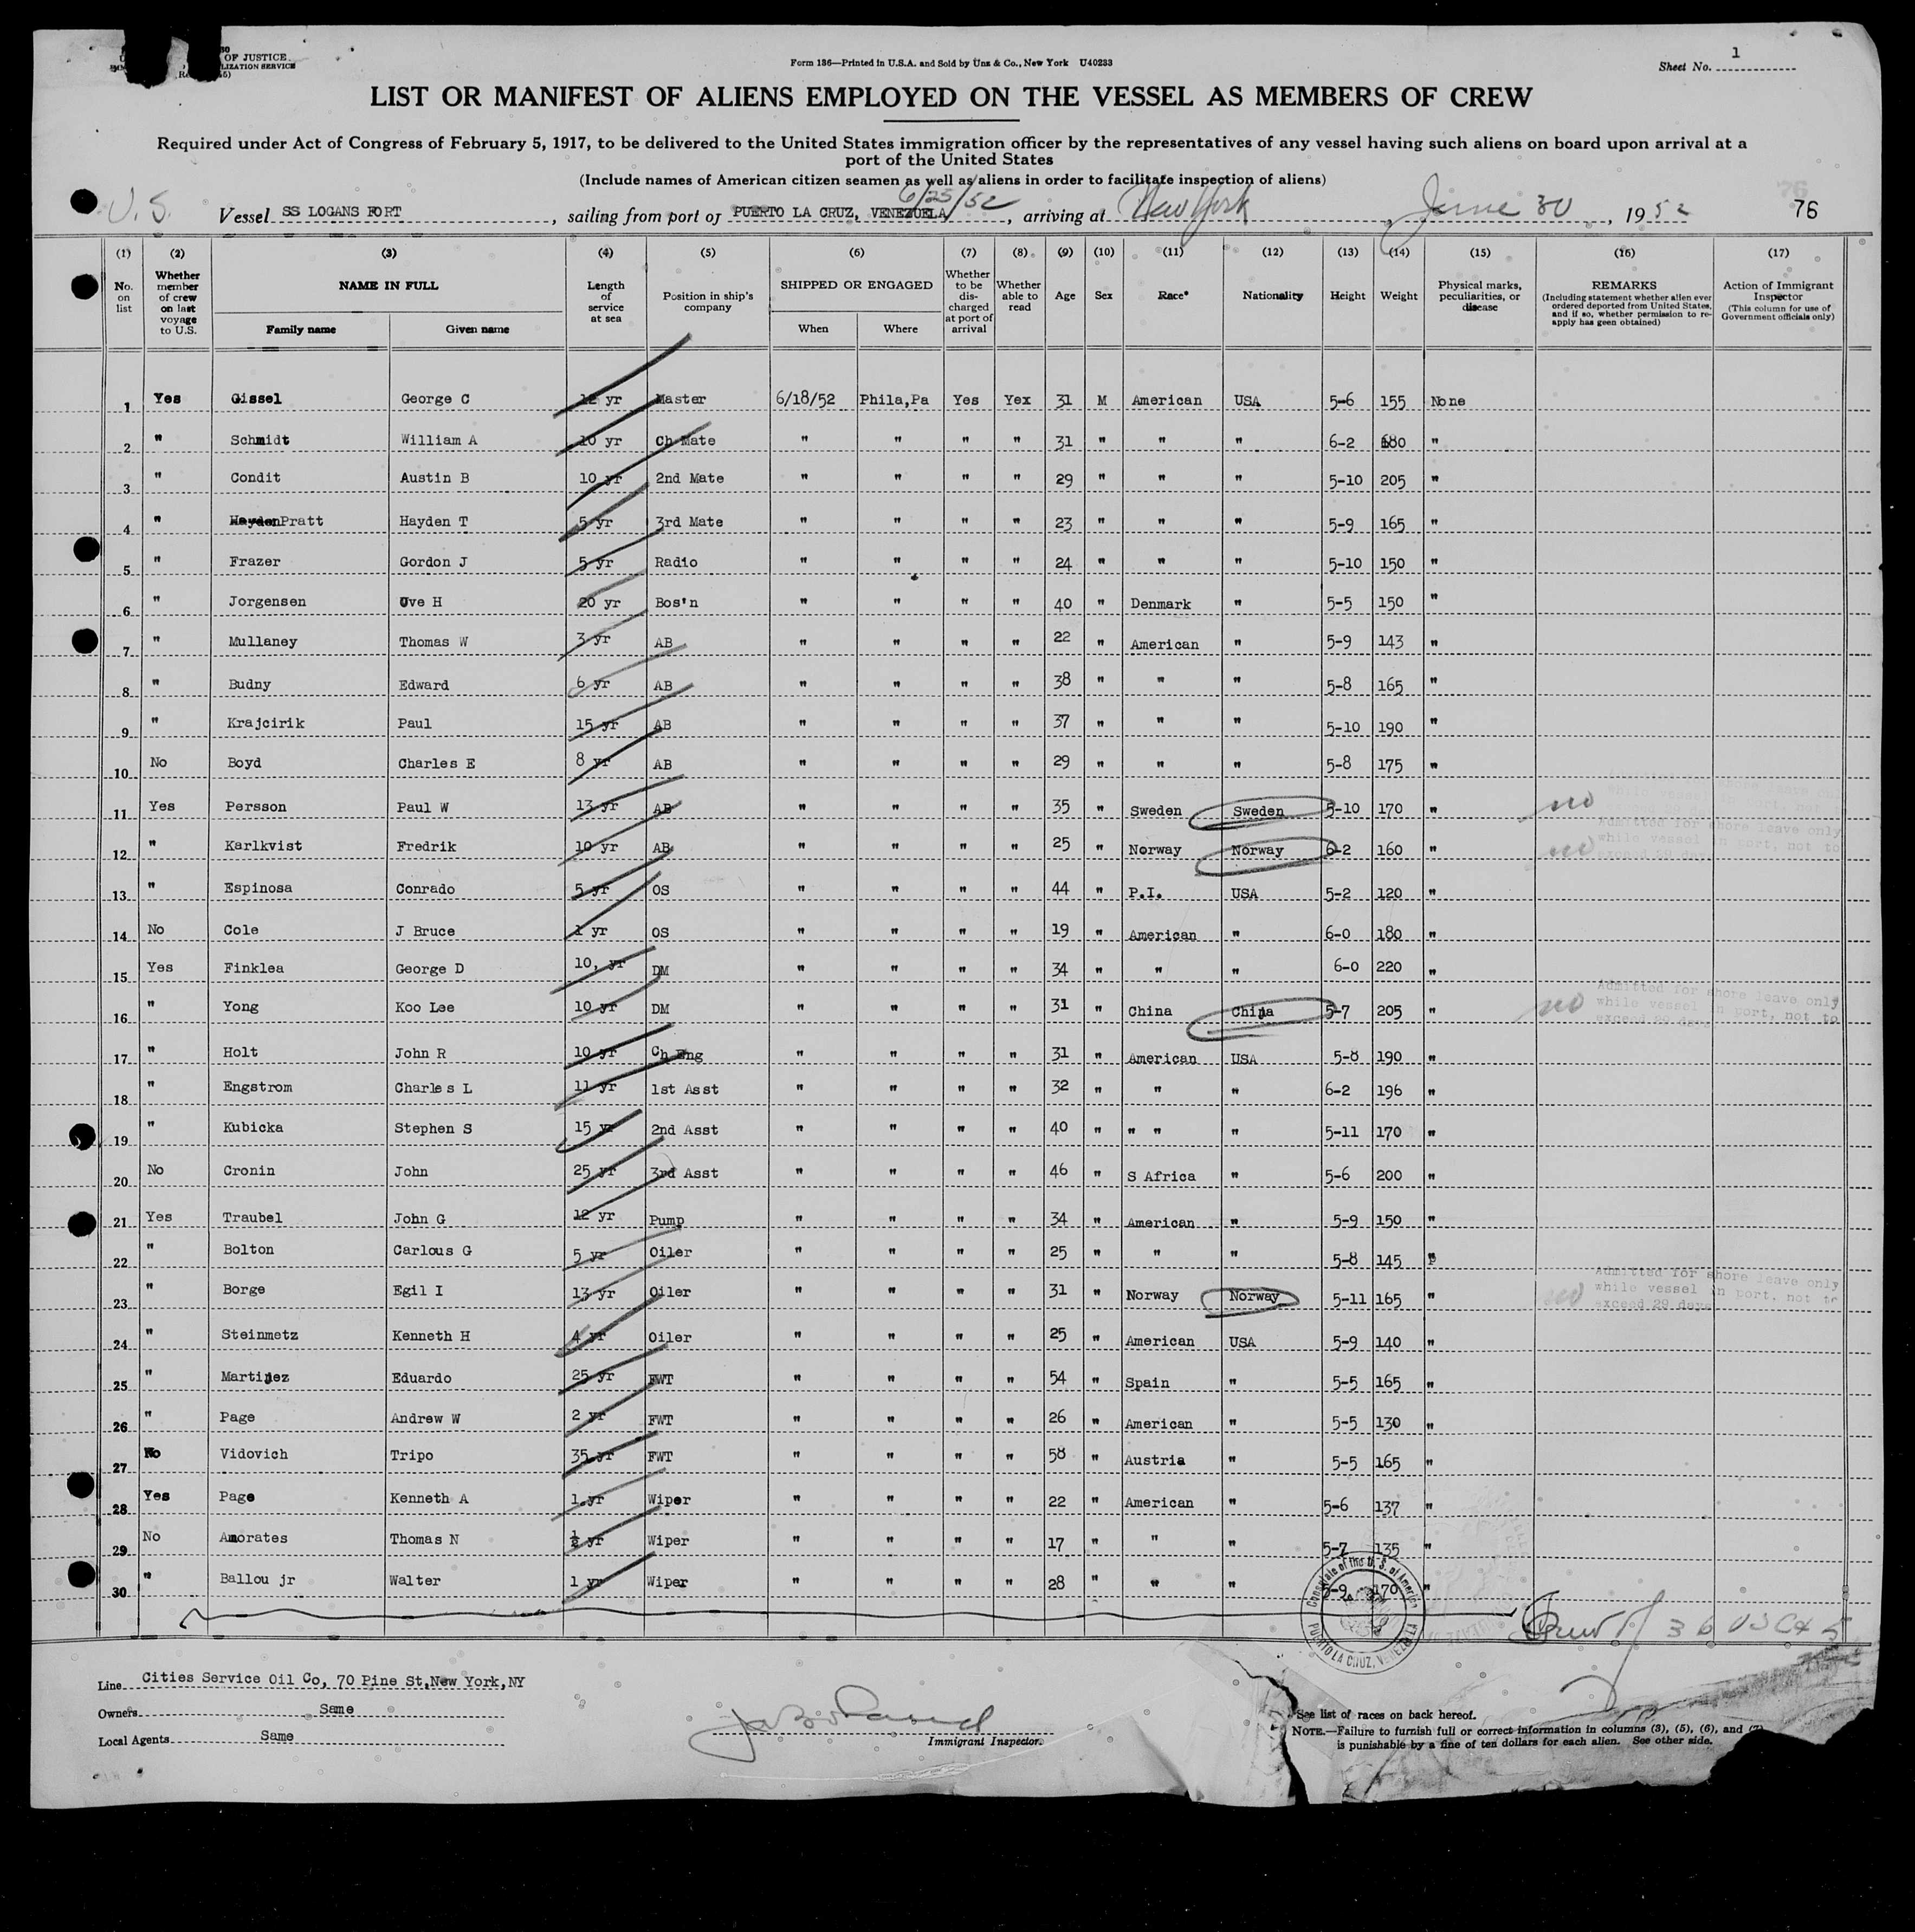 OF JUSTICE
LIZATION SERVICE
Form 136—Printed in U.S.A. and Sold by Unz & Co., New York U40233
Sheet No. 1
LIST OR MANIFEST OF ALIENS EMPLOYED ON THE VESSEL AS MEMBERS OF CREW
Required under Act of Congress of February 5, 1917, to be delivered to the United States immigration officer by the representatives of any vessel having such aliens on board upon arrival at a
port of the United States
(Include names of American citizen seamen as well as aliens in order to facilitate inspection of aliens)
6/25/52
U.S. Vessel SS LOGANS FORT, sailing from port of PUERTO LA CRUZ, VENEZUELA, arriving at New York, June 30, 1952 76
(1) (2) (3) (4) (5) (6) (7) (8) (9) (10) (11) (12) (13) (14) (15) (16) (17)
No. on list Whether member of crew on last voyage to U.S. NAME IN FULL Family name Given name Length of service at sea Position in ship's company SHIPPED OR ENGAGED When Where Whether to be discharged at port of arrival Whether able to read Age Sex Race* Nationality Height Weight Physical marks, peculiarities, or disease REMARKS (Including statement whether alien ever ordered deported from United States, and if so, whether permission to re-apply has geen obtained) Action of Immigrant Inspector (This column for use of Government officials only)
1 Yes Gissel George C 12 yr Master 6/18/52 Phila,Pa Yes Yex 31 M American USA 5-6 155 None
2 " Schmidt William A 10 yr Ch Mate " " " " 31 " " " 6-2 "
3 " Condit Austin B 10 yr 2nd Mate " " " " 29 " " " 5-10 205 "
4 " Hayden Pratt Hayden T 5 yr 3rd Mate " " " " 23 " " " 5-9 165 "
5 " Frazer Gordon J 5 yr Radio " " " " 24 " " " 5-10 150 "
6 " Jorgensen Ove H 20 yr Bos'n " " " " 40 " Denmark " 5-5 150 "
7 " Mullaney Thomas W 3 yr AB " " " " 22 " American " 5-9 143 "
8 " Budny Edward 6 yr AB " " " " 38 " " " 5-8 165 "
9 " Krajcirik Paul 15 yr AB " " " " 37 " " " 5-10 190 "
10 No Boyd Charles E 8 yr AB " " " " 29 " " " 5-8 175 "
11 Yes Persson Paul W 13 yr AB " " " " 35 " Sweden Sweden 5-10 170 " no
12 " Karlkvist Fredrik 10 yr AB " " " " 25 " Norway Norway 6-2 160 " no Admitted for shore leave only while vessel in port, not to exceed 29 days
13 " Espinosa Conrado 5 yr OS " " " " 44 " P.I. USA 5-2 120 "
14 No Cole J Bruce 1 yr OS " " " " 19 " American " 6-0 180 "
15 Yes Finklea George D 10, yr DM " " " " 34 " " " 6-0 220 "
16 " Yong Koo Lee 10 yr DM " " " " 31 " China China 5-7 205 " no Admitted for shore leave only while vessel in port, not to exceed 29 days
17 " Holt John R 10 yr Ch Eng " " " " 31 " American USA 5-8 190 "
18 " Engstrom Charles L 11 yr 1st Asst " " " " 32 " " " 6-2 196 "
19 " Kubicka Stephen S 15 yr 2nd Asst " " " " 40 " " " " 5-11 170 "
20 No Cronin John 25 yr 3rd Asst " " " " 46 " S Africa " 5-6 200 "
21 Yes Traubel John G 12 yr Pump " " " " 34 " American " 5-9 150 "
22 " Bolton Carlous G 5 yr Oiler " " " " 25 " " " 5-8 145 "
23 " Borge Egil I 13 yr Oiler " " " " 31 " Norway Norway 5-11 165 " no Admitted for shore leave only while vessel in port, not to exceed 29 days
24 " Steinmetz Kenneth H 4 yr Oiler " " " " 25 " American USA 5-9 140 "
25 " Martinez Eduardo 25 yr FWT " " " " 54 " Spain " 5-5 165 "
26 " Page Andrew W 2 yr FWT " " " " 26 " American " 5-5 130 "
27 No Vidovich Tripo 35 yr FWT " " " " 58 " Austria " 5-5 165 "
28 Yes Page Kenneth A 1 yr Wiper " " " " 22 " American " 5-6 137 "
29 No Amorates Thomas N ½ yr Wiper " " " " 17 " " " 5-7 135 "
30 " Ballou jr Walter 1 yr Wiper " " " " 28 " " " 5-9 170 "
Consulate of the U. S. of America
PUERTO LA CRUZ, VENEZUELA
Line Cities Service Oil Co, 70 Pine St,New York,NY
Owners Same
Local Agents Same
Immigrant Inspector.
See list of races on back hereof.
NOTE.—Failure to furnish full or correct information in columns (3), (5), (6), and (7)
is punishable by a fine of ten dollars for each alien. See other side.